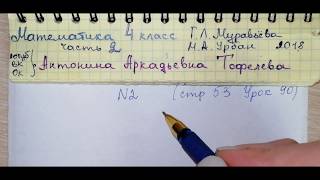 Математика 4 класс Г.Л. Муравьёва
часть 2 М.А. Урбан 2018
ВК
ОК
Антонина Аркадьевна Тофелева
N2 (стр 53 Урок 90)